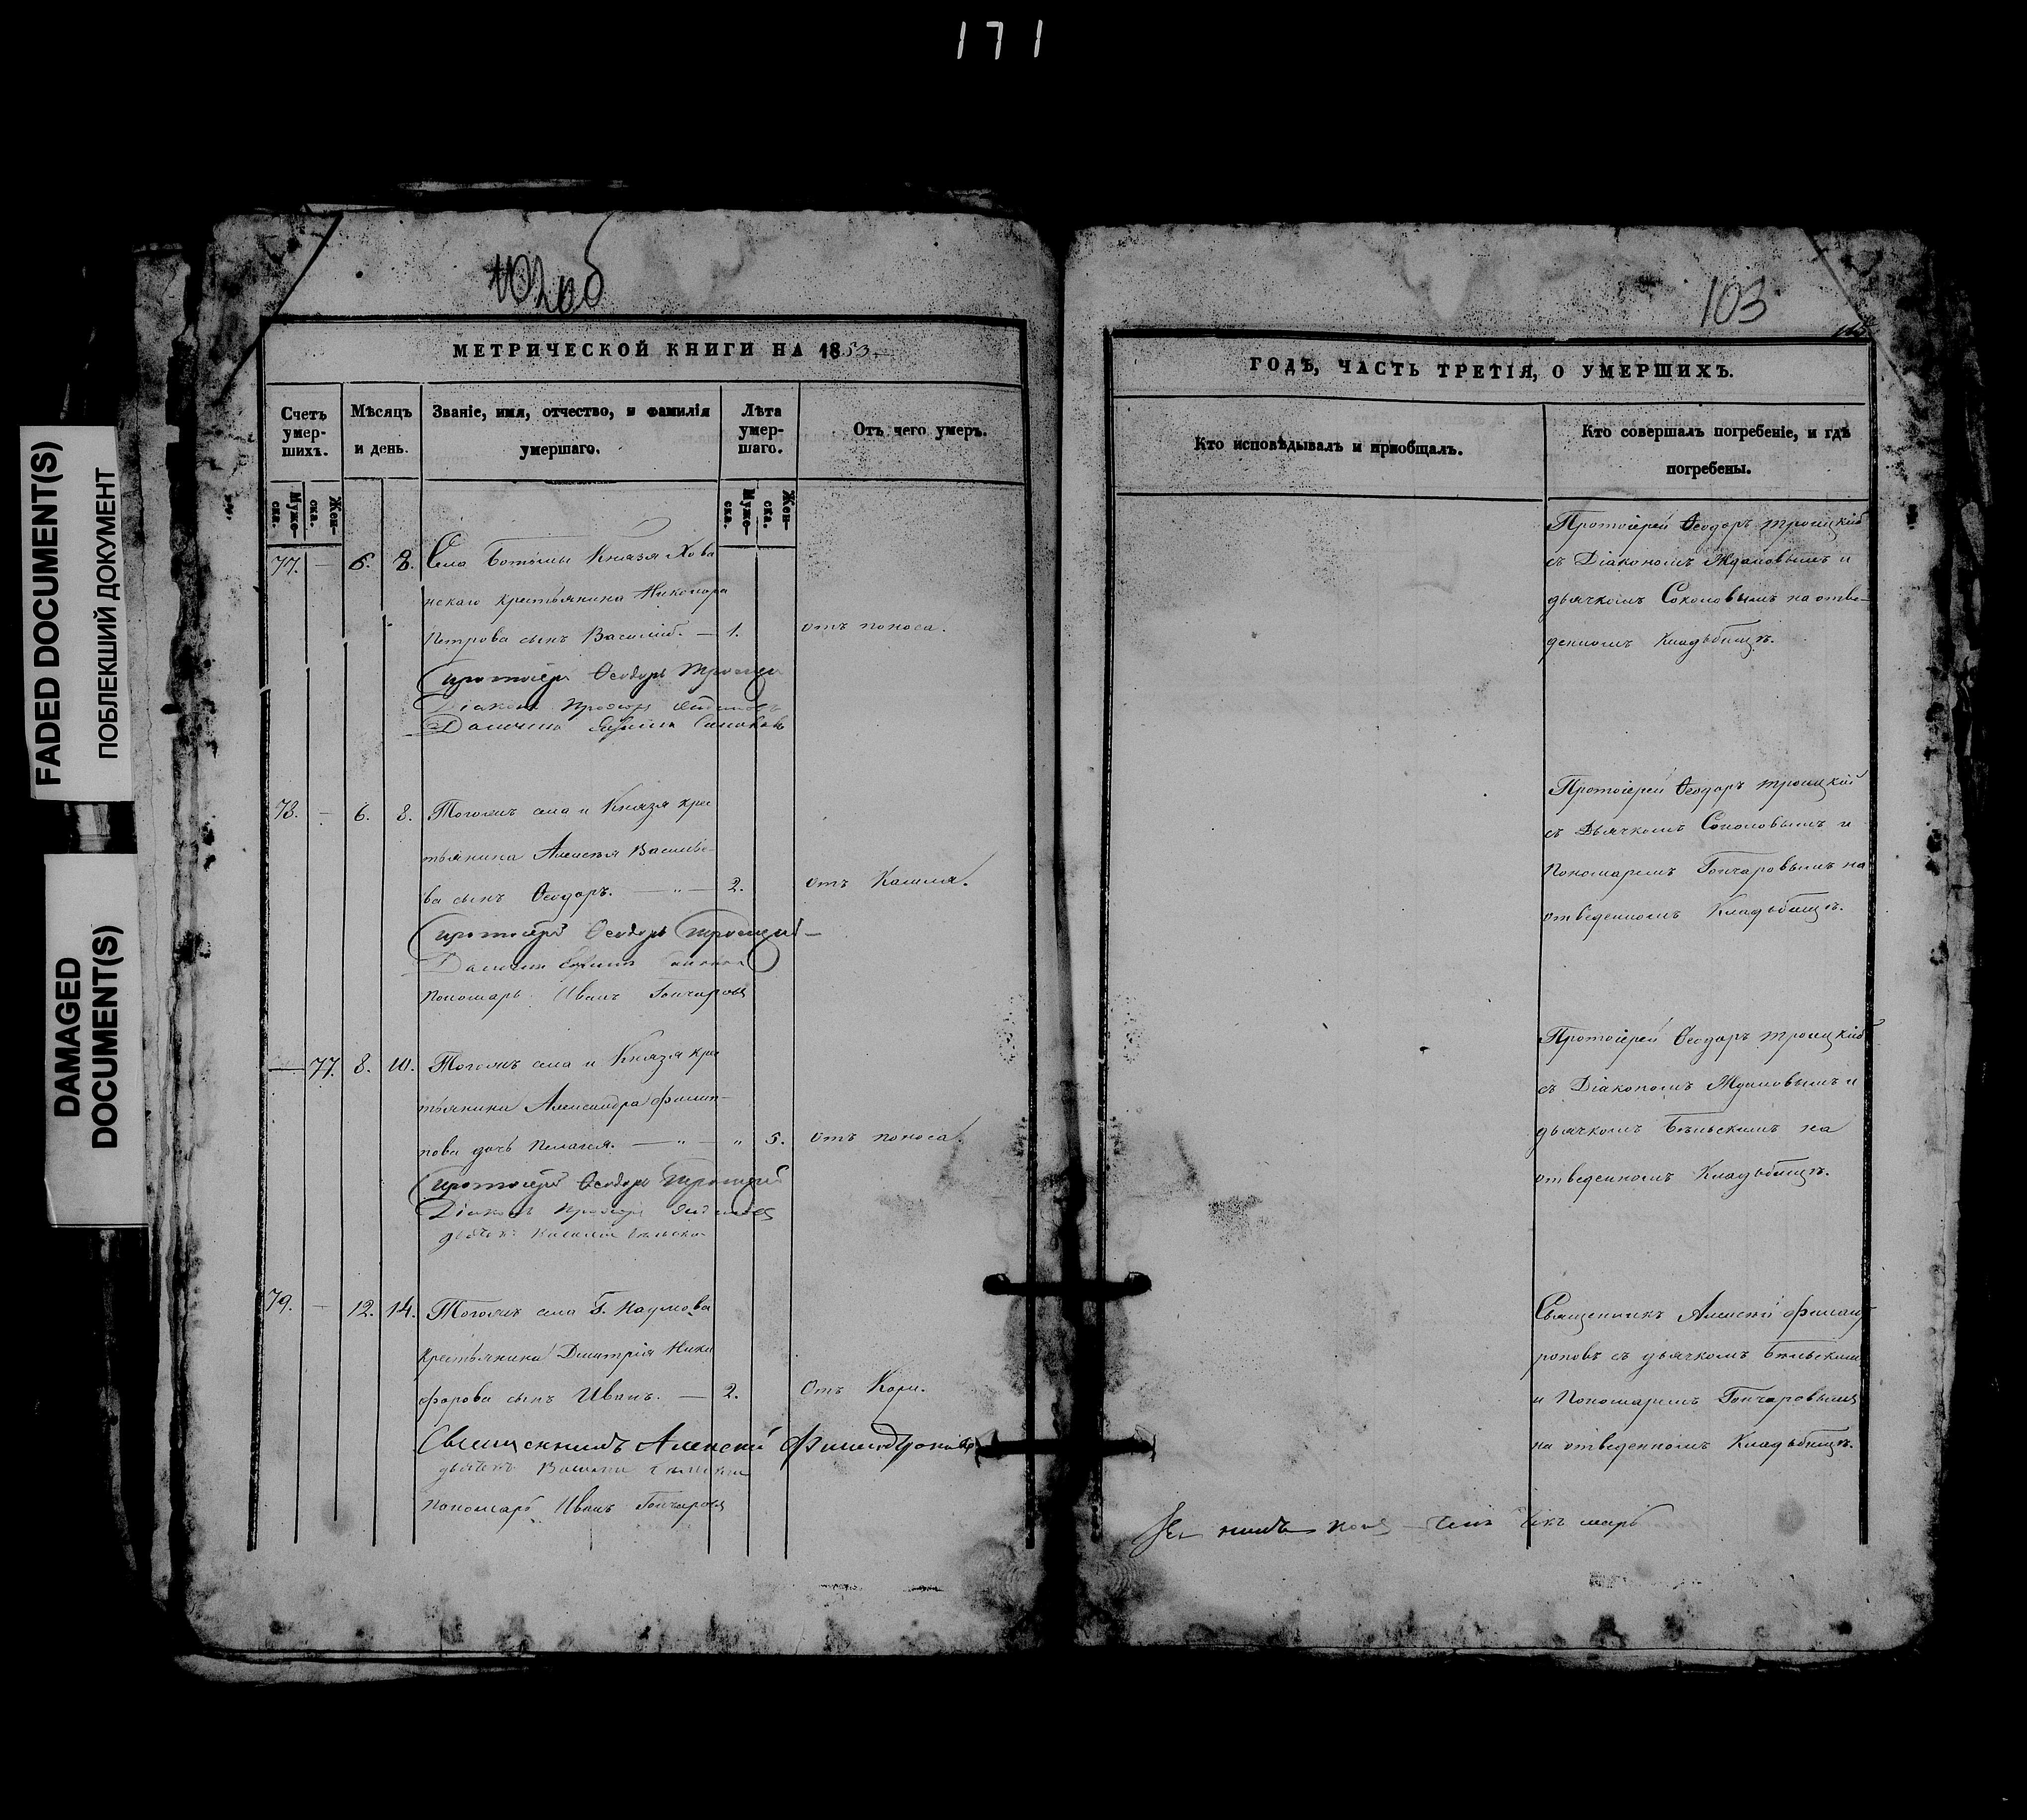 171
FADED DOCUMENT(S)
ПОБЛЕКШИЙ ДОКУМЕНТ
DAMAGED
DOCUMENT(S)
102об
МЕТРИЧЕСКОЙ КНИГИ НА 1853
Счетъ умер-шихъ.
Мужe-ска.
Жен-ска.
Мѣсяцъ и день.
Званіе, имя, отчество, и фамилія умершаго.
Лѣта умер-шаго.
Муже-ска.
Жен-ска.
Отъ чего умеръ.
77. — 6. 8. Села Ботьмы Князя Хова
нскаго крестьянина Никонора
Петрова сынъ Василій. — 1. отъ поноса.
Протоіерей Ѳеодоръ Троицкій
Діаконъ
78. — 6. 8. Тогожъ села и Князя крес
тьянина Алексѣя Василье-
ва сынъ Ѳеодоръ. — „ — 2. отъ Кашля.
Протоіерей Ѳеодоръ Троицкій
Пономарь Иванъ Гончаровъ
— 77. 8. 10. Тогожъ села и Князя крес
тьянина Александра Филип-
пова дочь Пелагея. — „ — „ 5. отъ поноса.
Протоіерей Ѳеодоръ Троицкій
Діаконъ
79. — 12. 14. Тогожъ села Г. Наумова
крестьянина Димитрія Ники
форова сынъ Иванъ. — 2. Отъ Кори.
Священникъ Алексей
Пономарь Иванъ Гончаровъ
103
ГОДЪ, ЧАСТЬ ТРЕТІЯ, О УМЕРШИХЪ.
Кто исповѣдывалъ и пріобщалъ.
Кто совершалъ погребеніе, и гдѣ погребены.
Протоіерей Ѳеодоръ Троицкій
съ Діакономъ Ждановымъ и
дьячкомъ Соколовымъ на отве-
денномъ Кладьбищѣ.
Протоіерей Ѳеодоръ Троицкій
съ Дьячкомъ Соколовымъ и
Пономаремъ Гончаровымъ на
отведенномъ Кладьбищѣ.
Протоіерей Ѳеодоръ Троицкій
съ Діакономъ Ждановымъ и
дьячкомъ Бѣльскимъ на
отведенномъ Кладьбищѣ.
Священникъ Алексій
съ дьячкомъ Бѣльскимъ
и Пономаремъ Гончаровымъ
на отведенномъ Кладьбищѣ.